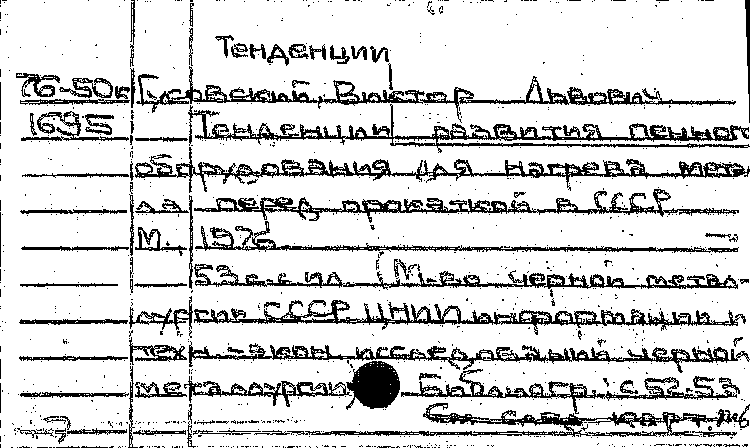 Тенденции
76-50к Гусовский, Виктор Львович
1695 Тенденции развития печног
оборудования для нагрева метал
ла перед прокаткой в СССР
М., 1976
53 с. с ил. (М-во черной метал-
лургии СССР. ЦНИИ информации и
техн.-экон. исследований черной
металлургии) Библиогр.: с. 52-53
См. след. карт.